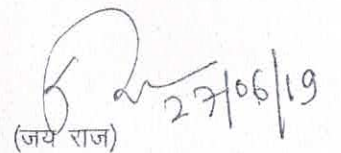 27/06/19
(जय राज)